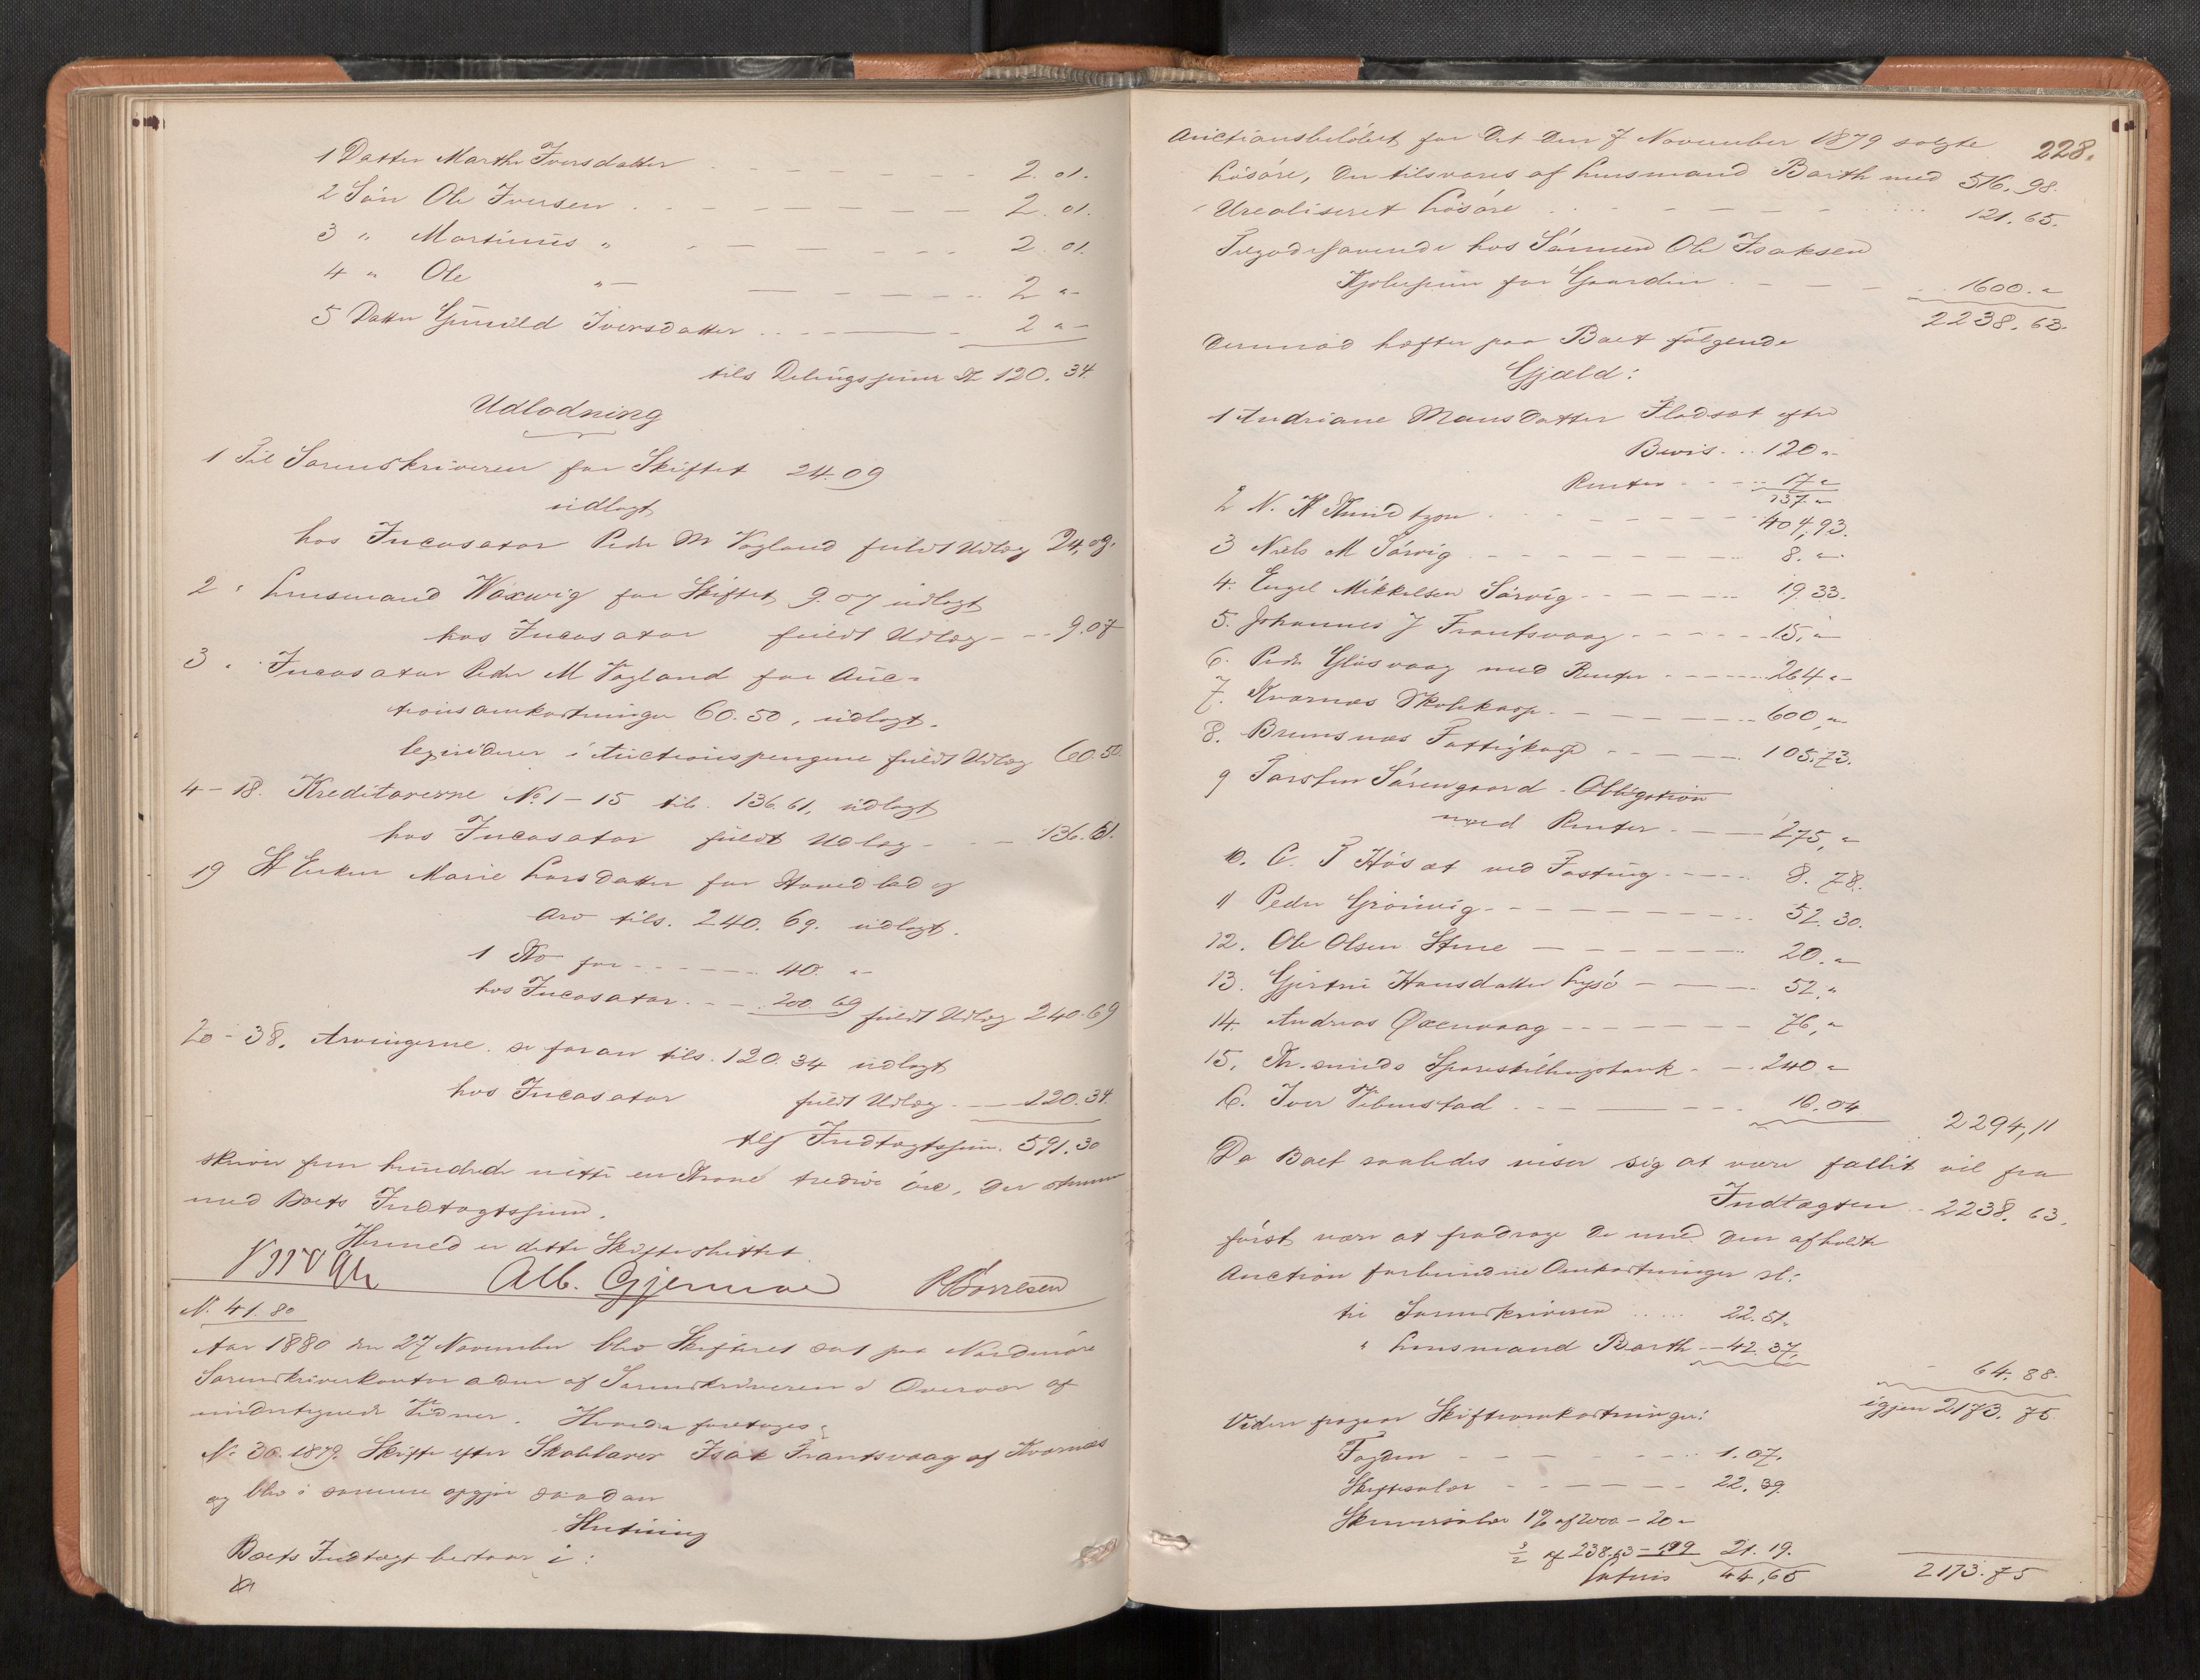 1 Datter Marthe Iversdatter - - - - - - - 2. 01.
2 Søn Ole Iversen - - - - - - - - 2. 01.
3 " Martinus " - - - - - - 2. 01.
4 " Ole "- - - - - - - 2 "-
5 Datter Gunild Iversdatter - - - - 2 "-
tils Delingssum Kr 120. 34.
Udlodning
1 Til Sorenskriveren for Skiftet 24.09
udlagt
hos Incasator Peder M Vagland fuldt Udlæg 24,09.
2 " Lensmand Waxwig for Skiftet 9.07 udlagt
hos Incasator fuldt Udlæg - - 9.07
3 " Incasator Peder M Vagland for Auc-
tionsomkostninger 60.50, udlagt.
legviderer i Auctionspengene fuldt Udlæg 60.50
4-18. Kreditorerne No 1-15 tils. 136.61, udlagt
hos Incasator fuldt Udlæg - - - 136.61.
19 Enken Marie Larsdatter for Hovedlod og
Arv tils. 240. 69. udlagt.
1 Ko for - - - - - - 40. "-
hos Incasator - - - 200 69 fuldt Udlæg 240.69
20-38. Arvingerne se foran tils. 120.34 udlagt
hos Incasator fuldt Udlæg - - 120.34
tils Indtægtssum. 591.30
skriver fem hundrede nitti en Krone tredive øre, der stemmer
med Boets Indtægtssum.
Hermed er dette Skifte sluttet
Alb. Gjermoe PBorresen
N. 41. 80
Aar 1880 den 27 November blev Skifteret sat paa Nordmøre
Sorenskriverkontor adm af Sorenskriveren i Overvær af
undertegnede Vidner. Hvorda foretoges:
No 30. 1879. Skifte efter Skolelærer Isak Frantsvaag af Kvernæs
og blev i samme opgjør saadan
Slutning
Boets Indtægt bestaar i:
228.
Auctionsbeløbet for det den 7 November 1879 solgte
Løsøre, der tilsvares af Lensmand Barth med 516. 98.
Urealiseret Løsøre - - - - - - 121. 65.
Tilgodehavende hos Sønnen Ole Isaksen
Kjøbesum for Gaarden - - - - 1600. "
2238. 63.
Dermod hefter paa Boet følgende
Gjæld:
1 Andriane Mansdatter Fladsæt efter
Bevis - - 120 "-
Renter - - - - 17 "
137 "-
2 N. H Knudtzon - - - - - 404,93.
3 Niels M Sørvig - - - - - - - 8. "-
4. Engel Mikkelsen Sørvig - - - - - 19 33.
5. Johannes J Frantsvaag - - - - - 15, "-
6. Peder Gløsvaag med Renter - - - - 264 "-
7. Kvernæs Skolekasse - - - - - - 600, "-
8. Bremsnæs Fattigkasse - - - - 105.73.
9 Torsten Sørengaard - Obligation
med Renter - - - 275, "-
10. C. P Høsæt ved Fasting - - - - 8. 78.
11 Peder Grønvig - - - - - - - 52. 30.
12. Ole Olsen Stene - - - - - 20. "-
13. Gjertrü Hansdatter Lysø - - - - 52. "
14. Andreas Øxenvaag - - - - - 76, "-
15. Kr.sunds Spareskillingsbank - - 240 "-
16. Iver Vebenstad - - - - - 16.04
2294,11
Da Boet saaledes viser sig at være fallit vil fra
Indtægten - 2238. 63.
først være at fradrage de med den afholdte
Auction forbundne Omkostninger sl:
til Sorenskriveren .... 22.51.
" Lensmand Barth - - 42. 37.
64. 88.
igjen 2173. 75
Videre fragaar Skifteomkostninger:
Fogden - - - - - - - 1. 07.
Skiftesalær - - - - - - 22. 39
Skriversalær 1% af 2000 - 20 "-
½ af 238.63 - 1.19 21. 19.
Latus 44,65 2173.75